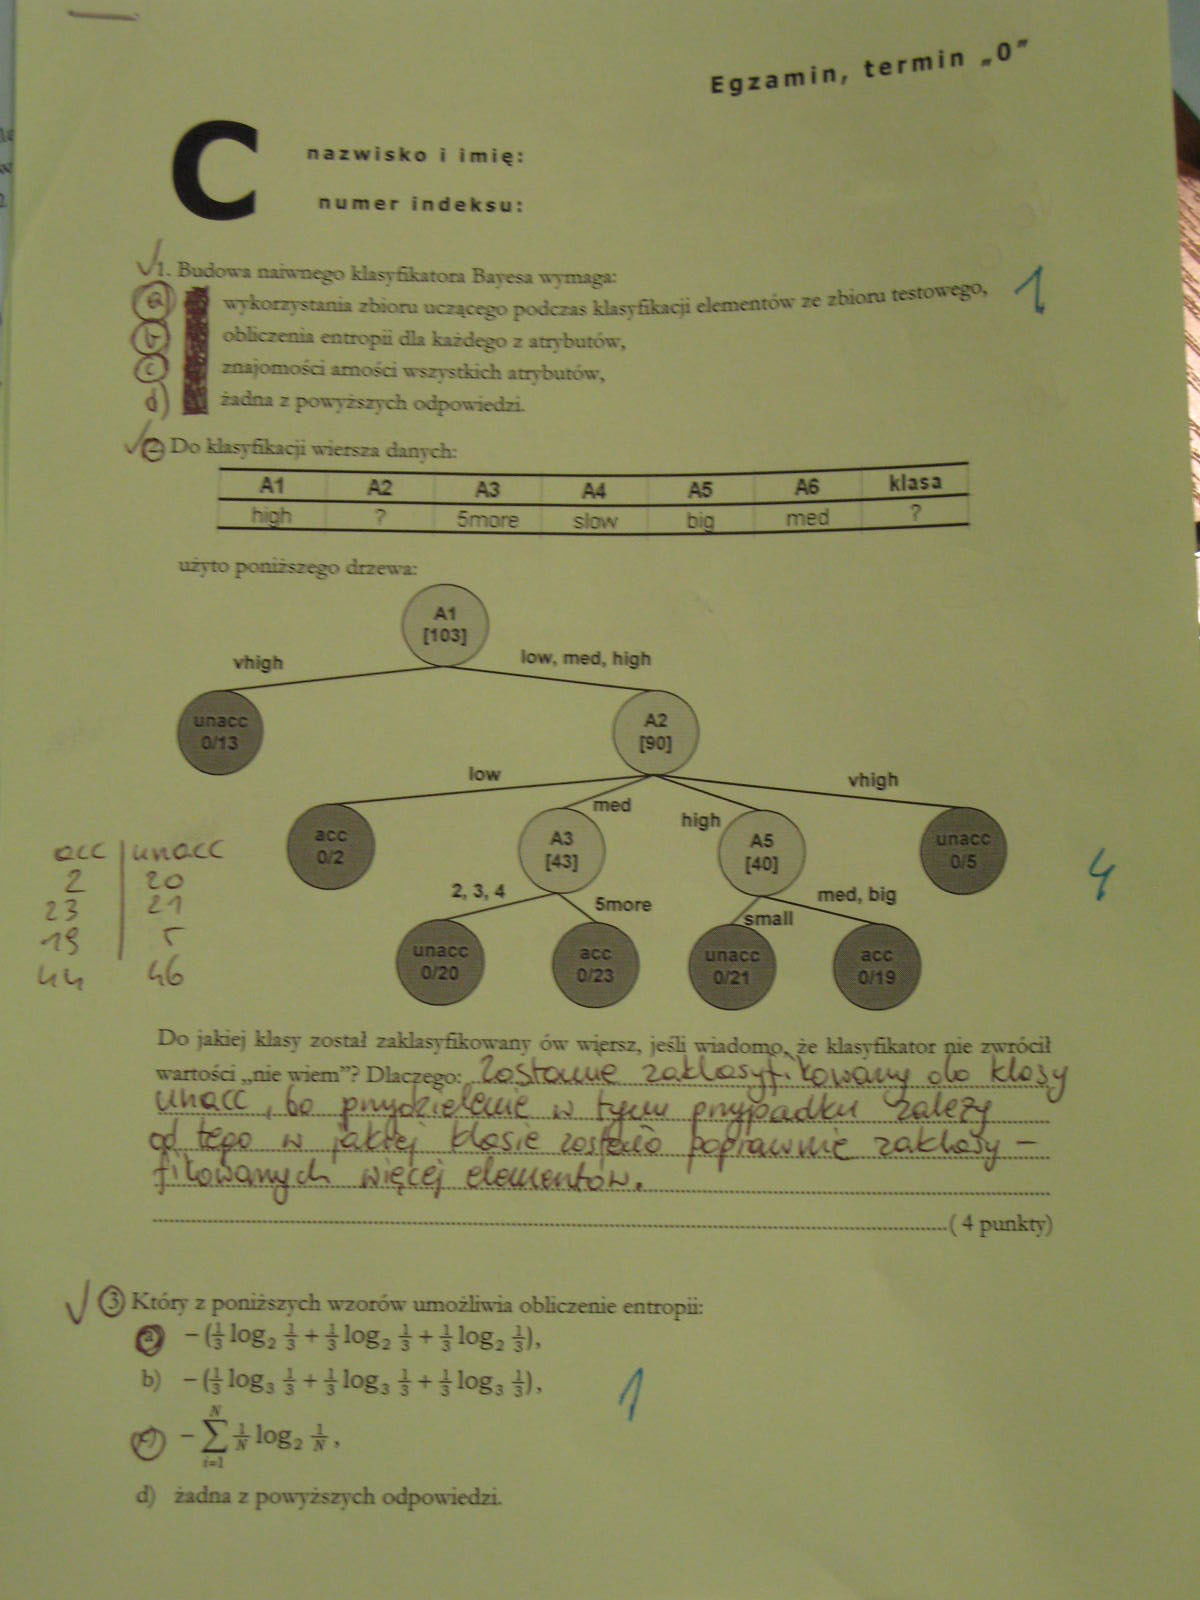 Egzamin, termin „0”
C
nazwisko i imię:
numer indeksu:
1. Budowa naiwnego klasyfikatora Bayesa wymaga:
a wykorzystania zbioru uczącego podczas klasyfikacji elementów ze zbioru testowego,
1
b obliczenia entropii dla każdego z atrybutów,
c znajomości arności wszystkich atrybutów,
d) żadna z powyższych odpowiedzi.
2 Do klasyfikacji wiersza danych:
A1 A2 A3 A4 A5 A6 klasa
high ? 5more slow big med ?
użyto poniższego drzewa:
A1
[103]
vhigh low, med, high
unacc
0/13
A2
[90]
low med high vhigh
acc
0/2
A3
[43]
A5
[40]
unacc
0/5
acc unacc
2 20
23 21
19 5
44 46
4
2, 3, 4 5more small med, big
unacc
0/20
acc
0/23
unacc
0/21
acc
0/19
Do jakiej klasy został zaklasyfikowany ów wiersz, jeśli wiadomo, że klasyfikator nie zwrócił
wartości „nie wiem”? Dlaczego: Zostanie zaklasyfikowany do klasy
unacc, bo przydzielenie w tym przypadku zależy
od tego w jakiej klasie zostało poprawnie zaklasy-
fikowanych więcej elementów.
( 4 punkty)
3 Który z poniższych wzorów umożliwia obliczenie entropii:
a) −(1/3 log₂ 1/3 + 1/3 log₂ 1/3 + 1/3 log₂ 1/3),
b) −(1/3 log₃ 1/3 + 1/3 log₃ 1/3 + 1/3 log₃ 1/3),
1
c) −∑ᵢ₌₁ᴺ 1/N log₂ 1/N,
d) żadna z powyższych odpowiedzi.